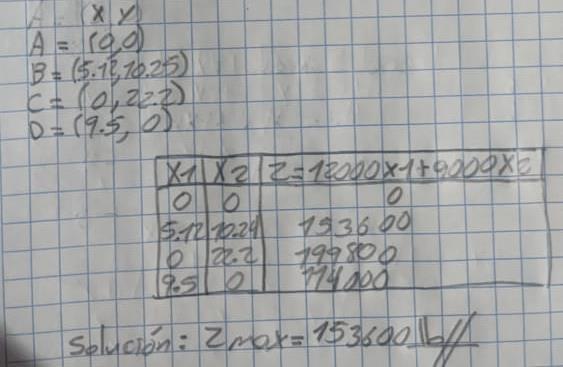 (X,Y)
A = (0,0)
B = (5.12,10.25)
C = (0,22.2)
D = (9.5, 0)
X1 X2 Z=12000X1+9000X2
0 0 0
5.12 10.24 153600
0 22.2 199800
9.5 0 114000
Solución: Z max = 153600 lb//